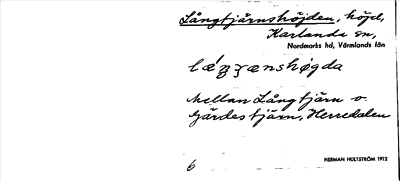 Långtjärnshöjden, höjd,
Karlanda sn,
Nordmarks hd, Värmlands län
Mellan Långtjärn o.
Gärdestjärn, Herredalen
HERMAN HULTSTRÖM 1912
6